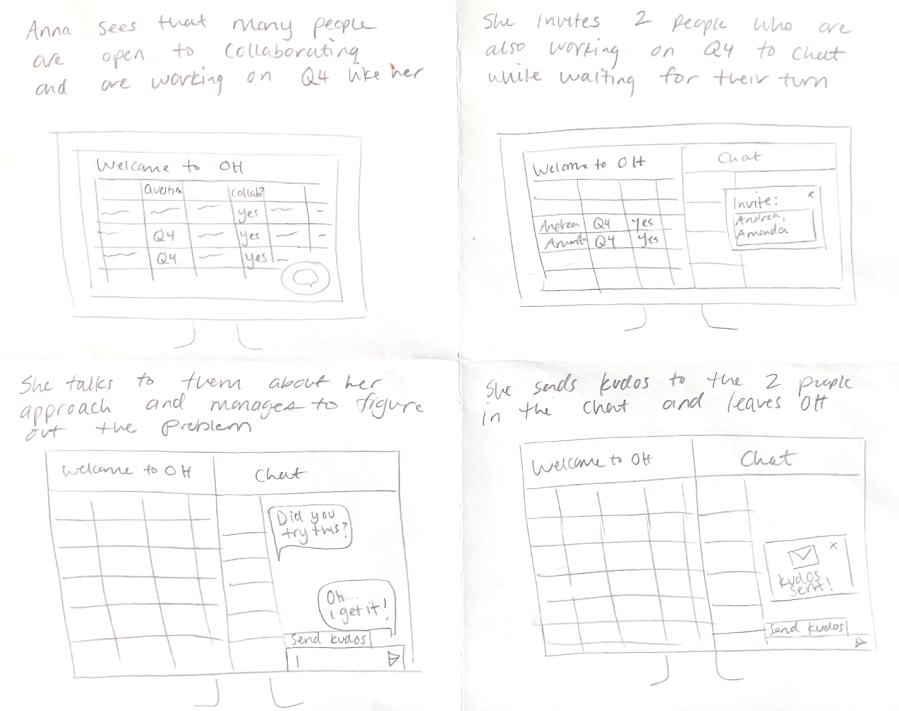 Anna sees that many people
are open to collaborating
and are working on Q4 like her
Welcome to OH
Question collab?
yes
Q4 yes
Q4 yes
She invites 2 people who are
also working on Q4 to chat
while waiting for their turn
Welcome to OH
Chat
Invite: x
Andrea,
Amanda
Andrea Q4 Yes
Amanda Q4 Yes
She talks to them about her
approach and manages to figure
out the problem
Welcome to OH
Chat
Did you
try this?
Oh...
i get it!
Send kudos
She sends kudos to the 2 people
in the chat and leaves OH
Welcome to OH
Chat
x
kudos
sent!
Send kudos